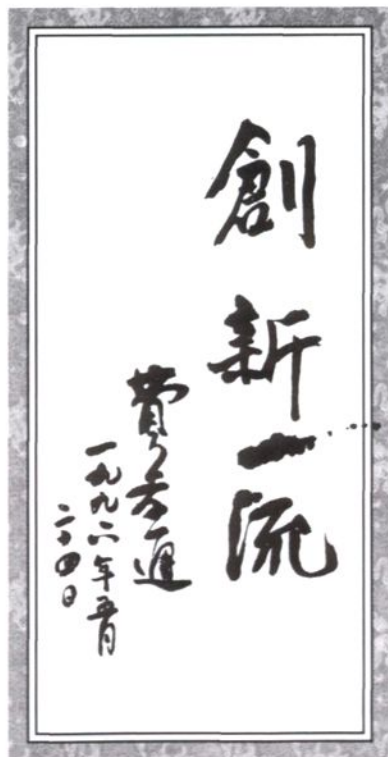 創新一流
費孝通
一九九六年五月
二十四日